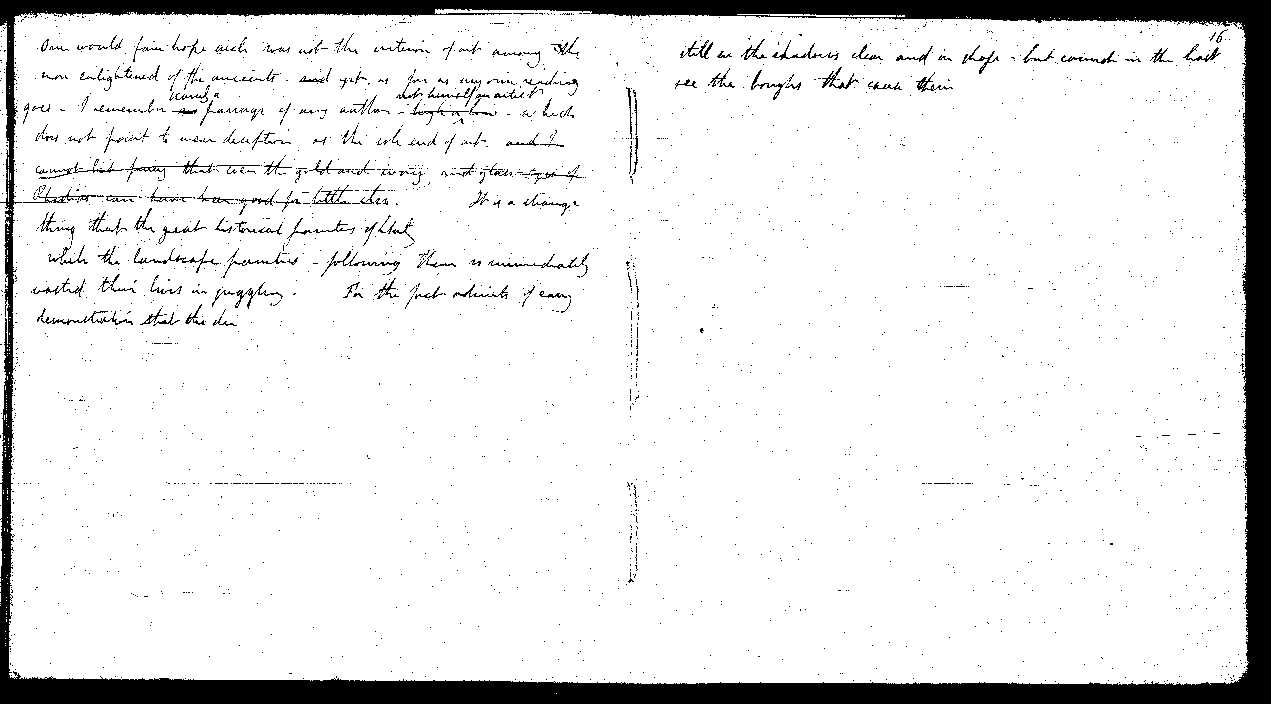 One would fain hope such was not the criterion of art among the
more enlightened of the ancients and yet, as far as my own reading
scarcely a not himself an artist
goes - I remember no passage of any author - high or low - which
does not point to mere deception, as the sole end of art. and I
cannot but fancy that even the gold and ivory, and glass eyes of
Phidias can have been good for little else. It is a strange
thing that the great historical painters of that
while the landscape painters - following them immediately
wasted their lives in juggling. For the fact admits of easy
demonstration that the
16
still in the shadows clear and in shape - but cannot in the least
see the boughs that cause them